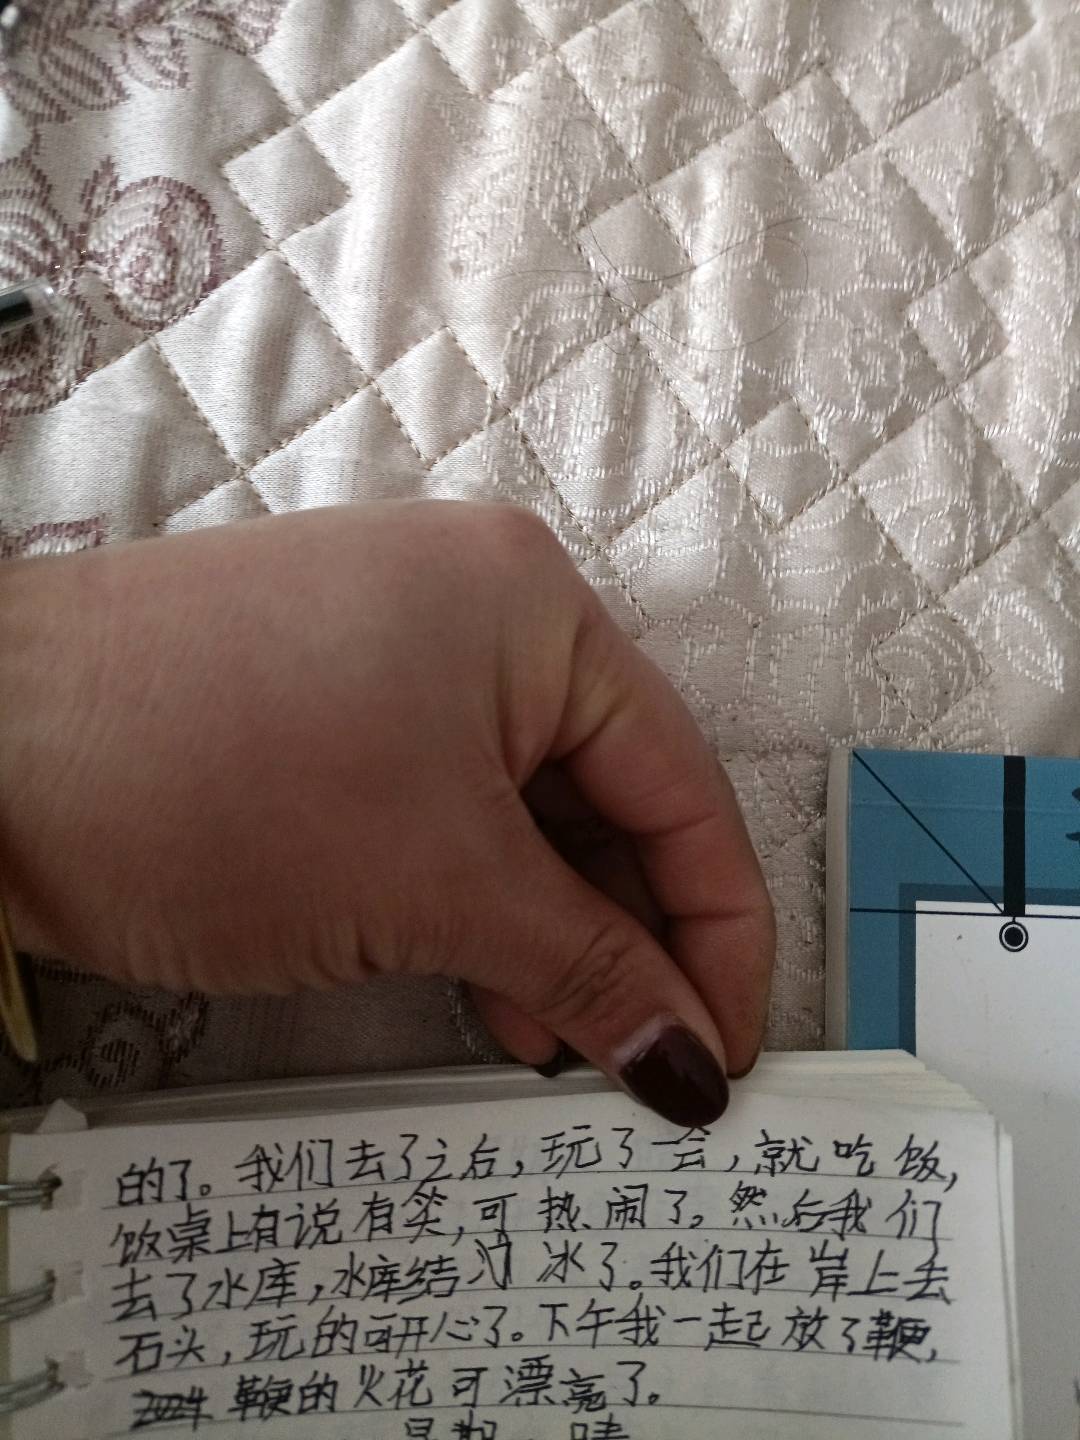 的了。我们去了之后,玩了一会,就吃饭,
饭桌上有说有笑,可热闹了。然后我们
去了水库,水库结冰了。我们在岸上去
石头,玩的可开心了。下午我一起放了鞭,
鞭的火花可漂亮了。
星期 晴